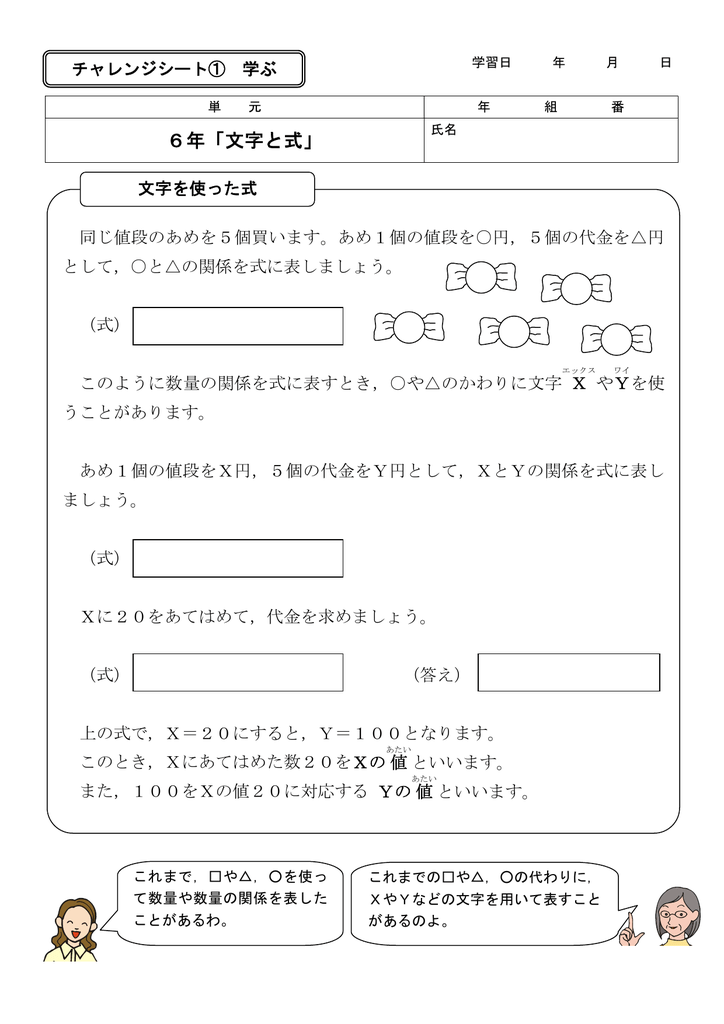 チャレンジシート① 学ぶ
学習日 年 月 日
単 元
年 組 番
6年「文字と式」
氏名
文字を使った式
同じ値段のあめを5個買います。あめ1個の値段を○円，5個の代金を△円
として，○と△の関係を式に表しましょう。
（式）
エックス ワイ
このように数量の関係を式に表すとき，○や△のかわりに文字 X やYを使
うことがあります。
あめ1個の値段をX円，5個の代金をY円として，XとYの関係を式に表し
ましょう。
（式）
Xに20をあてはめて，代金を求めましょう。
（式） （答え）
上の式で，X＝20にすると，Y＝100となります。
あたい
このとき，Xにあてはめた数20をXの 値 といいます。
あたい
また，100をXの値20に対応する Yの 値 といいます。
これまで，□や△，○を使っ
て数量や数量の関係を表した
ことがあるわ。
これまでの□や△，○の代わりに，
XやYなどの文字を用いて表すこと
があるのよ。